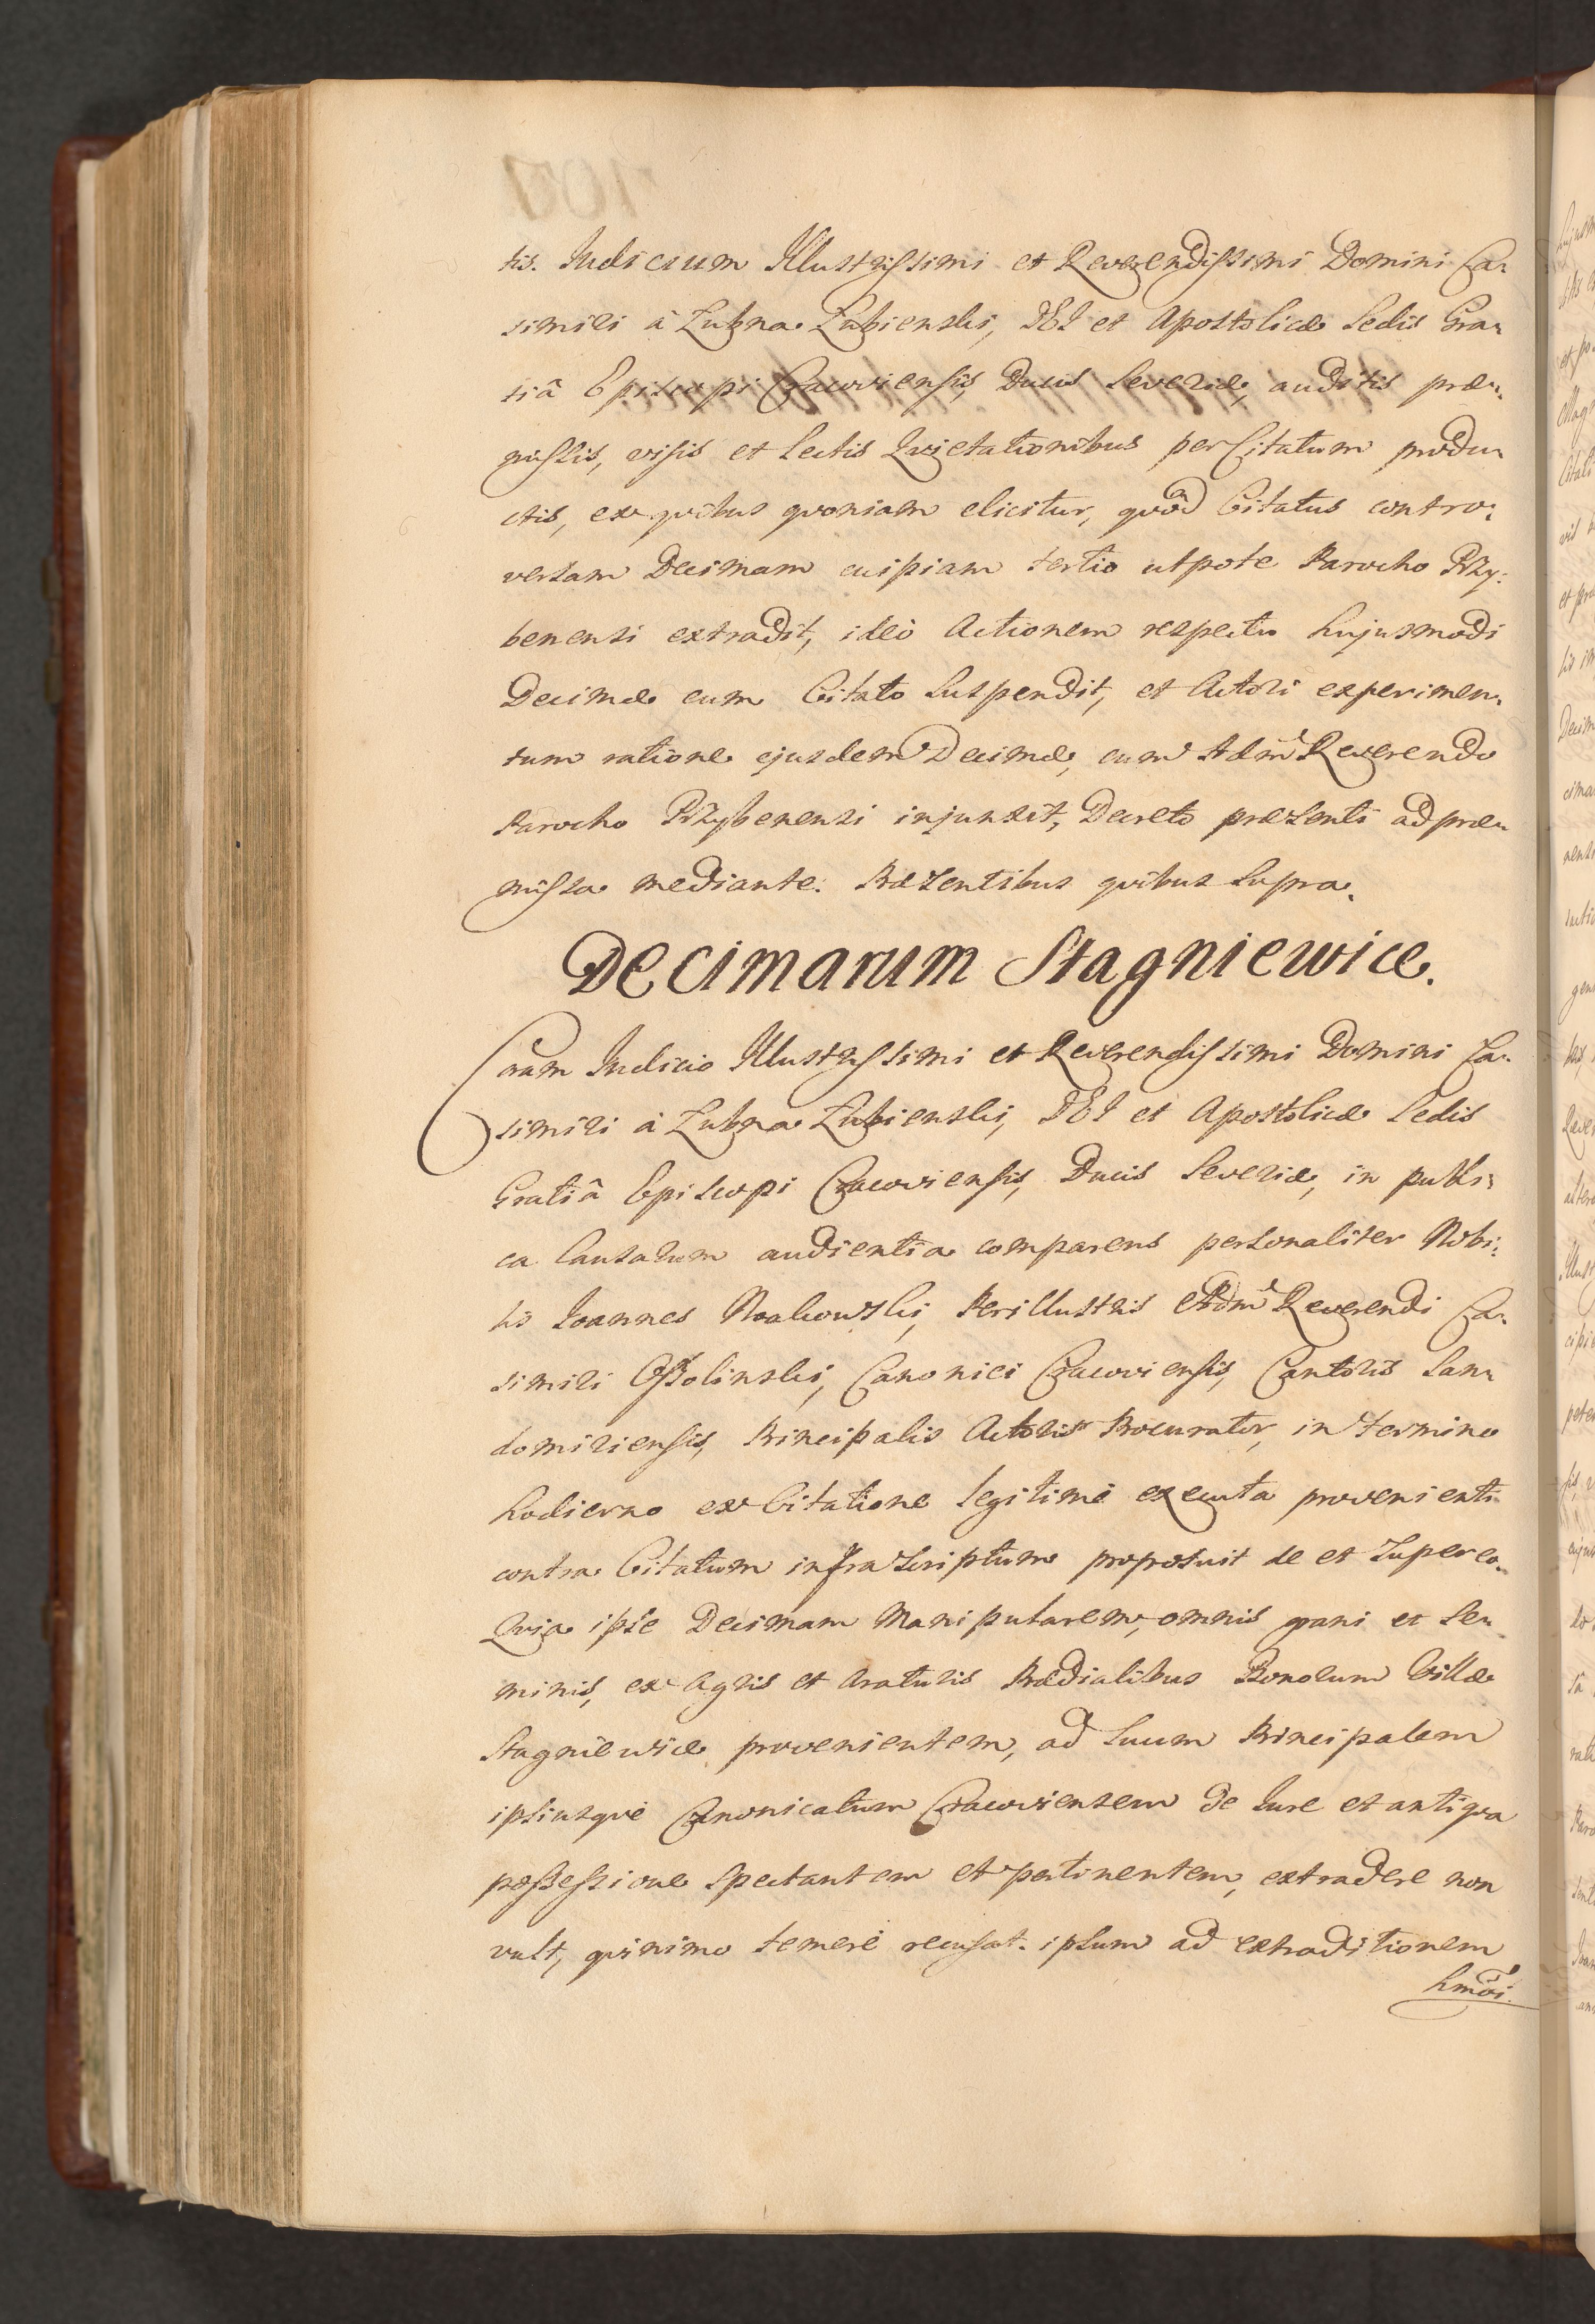 tis. Judicium Illustrissimi et Reverendissimi Domini Ca-
simiri à Lubna Lubienski, DEI et Apostolicæ Sedis Gra-
tiâ Episcopi Cracoviensis, Ducis Severiæ, auditis præ-
missis, visis et lectis Qvietationibus per Citatum produ-
ctis, ex qvibus qvoniam elicitur, qvòd Citatus contro-
versam Decimam cuipiam tertio utpote Parocho Przy-
benensi extradit, ideò Actionem respectu hujusmodi
Decimæ cum Citato suspendit, et Actori experimen-
tum ratione ejusdem Decimæ, cum Adm. Reverendo
Parocho Przybenensi injunxit, Decreto præsenti ad præ-
missa mediante. Præsentibus qvibus supra.
Decimarum Stagniewice.
Coram Judicio Illustrissimi et Reverendissimi Domini Ca-
simiri à Lubna Lubienski, DEI et Apostolicæ Sedis
Gratiâ Episcopi Cracoviensis, Ducis Severiæ, in publi-
ca Causarum audientia comparens personaliter Nobi-
lis Joannes Noakowski, Perillustris et Adm. Reverendi Ca-
simiri Ossolinski, Canonici Cracoviensis, Cantoris San-
domiriensis, Principalis Actoris Procurator, in termino
hodierno ex Citatione legitimè executa provenienti
contra Citatum infrascriptum proposuit de et super eo.
Qvia ipse Decimam Manipularem, omnis grani et se-
minis, ex Agris et Araturis Prædialibus Bonorum Villæ
Stagniewice provenientem, ad suum Principalem
ipsiusqve Canonicatum Cracoviensem de Jure et antiqva
possessione spectantem et pertinentem, extradere non
vult, qvinimo temerè recusat. ipsum ad extraditionem
hmõi.